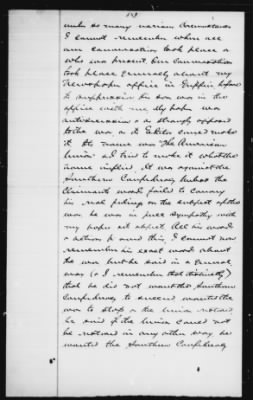 under so many various circumstances
I cannot remember where all
our conversation took place or
who was present. Our conversation
took place generally about my
Newspaper office in Griffin before
its suppression his son was in the
office with me. My paper was
antisecession & a strongly opposed
to the war as its Editor could make
it. Its name was "The American
Union" as I tried to make it what the
name implied. It was against the
Southern Confederacy but as the
Claimants words failed to convey
his real feelings on the subject of the
war he was in full sympathy with
my paper its object. All his words
& actions proved this, I cannot now
remember his exact words about
the war but he said in a general
way (& I remember that distinctly)
that he did not want the Southern
Confederacy to succeed wanted the
war to stop & the Union restored,
he said if the Union could not
be restored in any other way he
wanted the Southern Confederacy